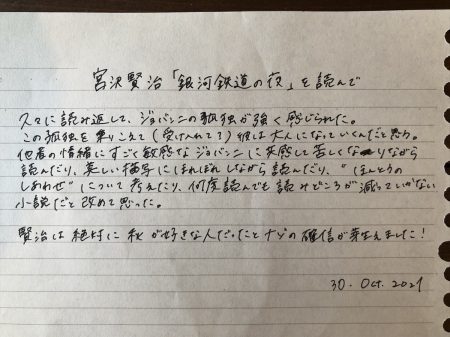 宮沢賢治「銀河鉄道の夜」を読んで
久々に読み返して、ジョバンニの孤独が強く感じられた。
この孤独を乗りこえて(受け入れて?)彼は大人になっていくんだと思う。
他者の情緒にすごく敏感なジョバンニに共感して苦しくなりながら
読んだり、美しい描写にほれぼれしながら読んだり、"ほんとうの
しあわせ"について考えたり、何度読んでも読みどころが減っていかない
小説だと改めて思った。
賢治は絶対に秋が好きな人だったとナゾの確信が芽生えました!
30. Oct. 2021